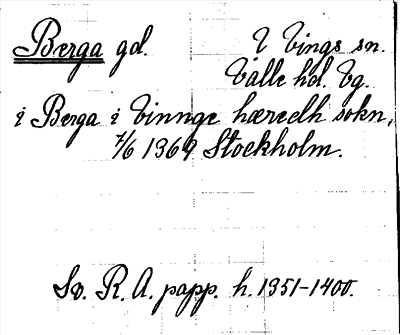 Berga gd. V Vings sn.
Valle hd. Vg.
i Berga i Vinnge hæredh sokn,
7/6 1369 Stockholm.
Sv. R. A. papp. h. 1351-1400.